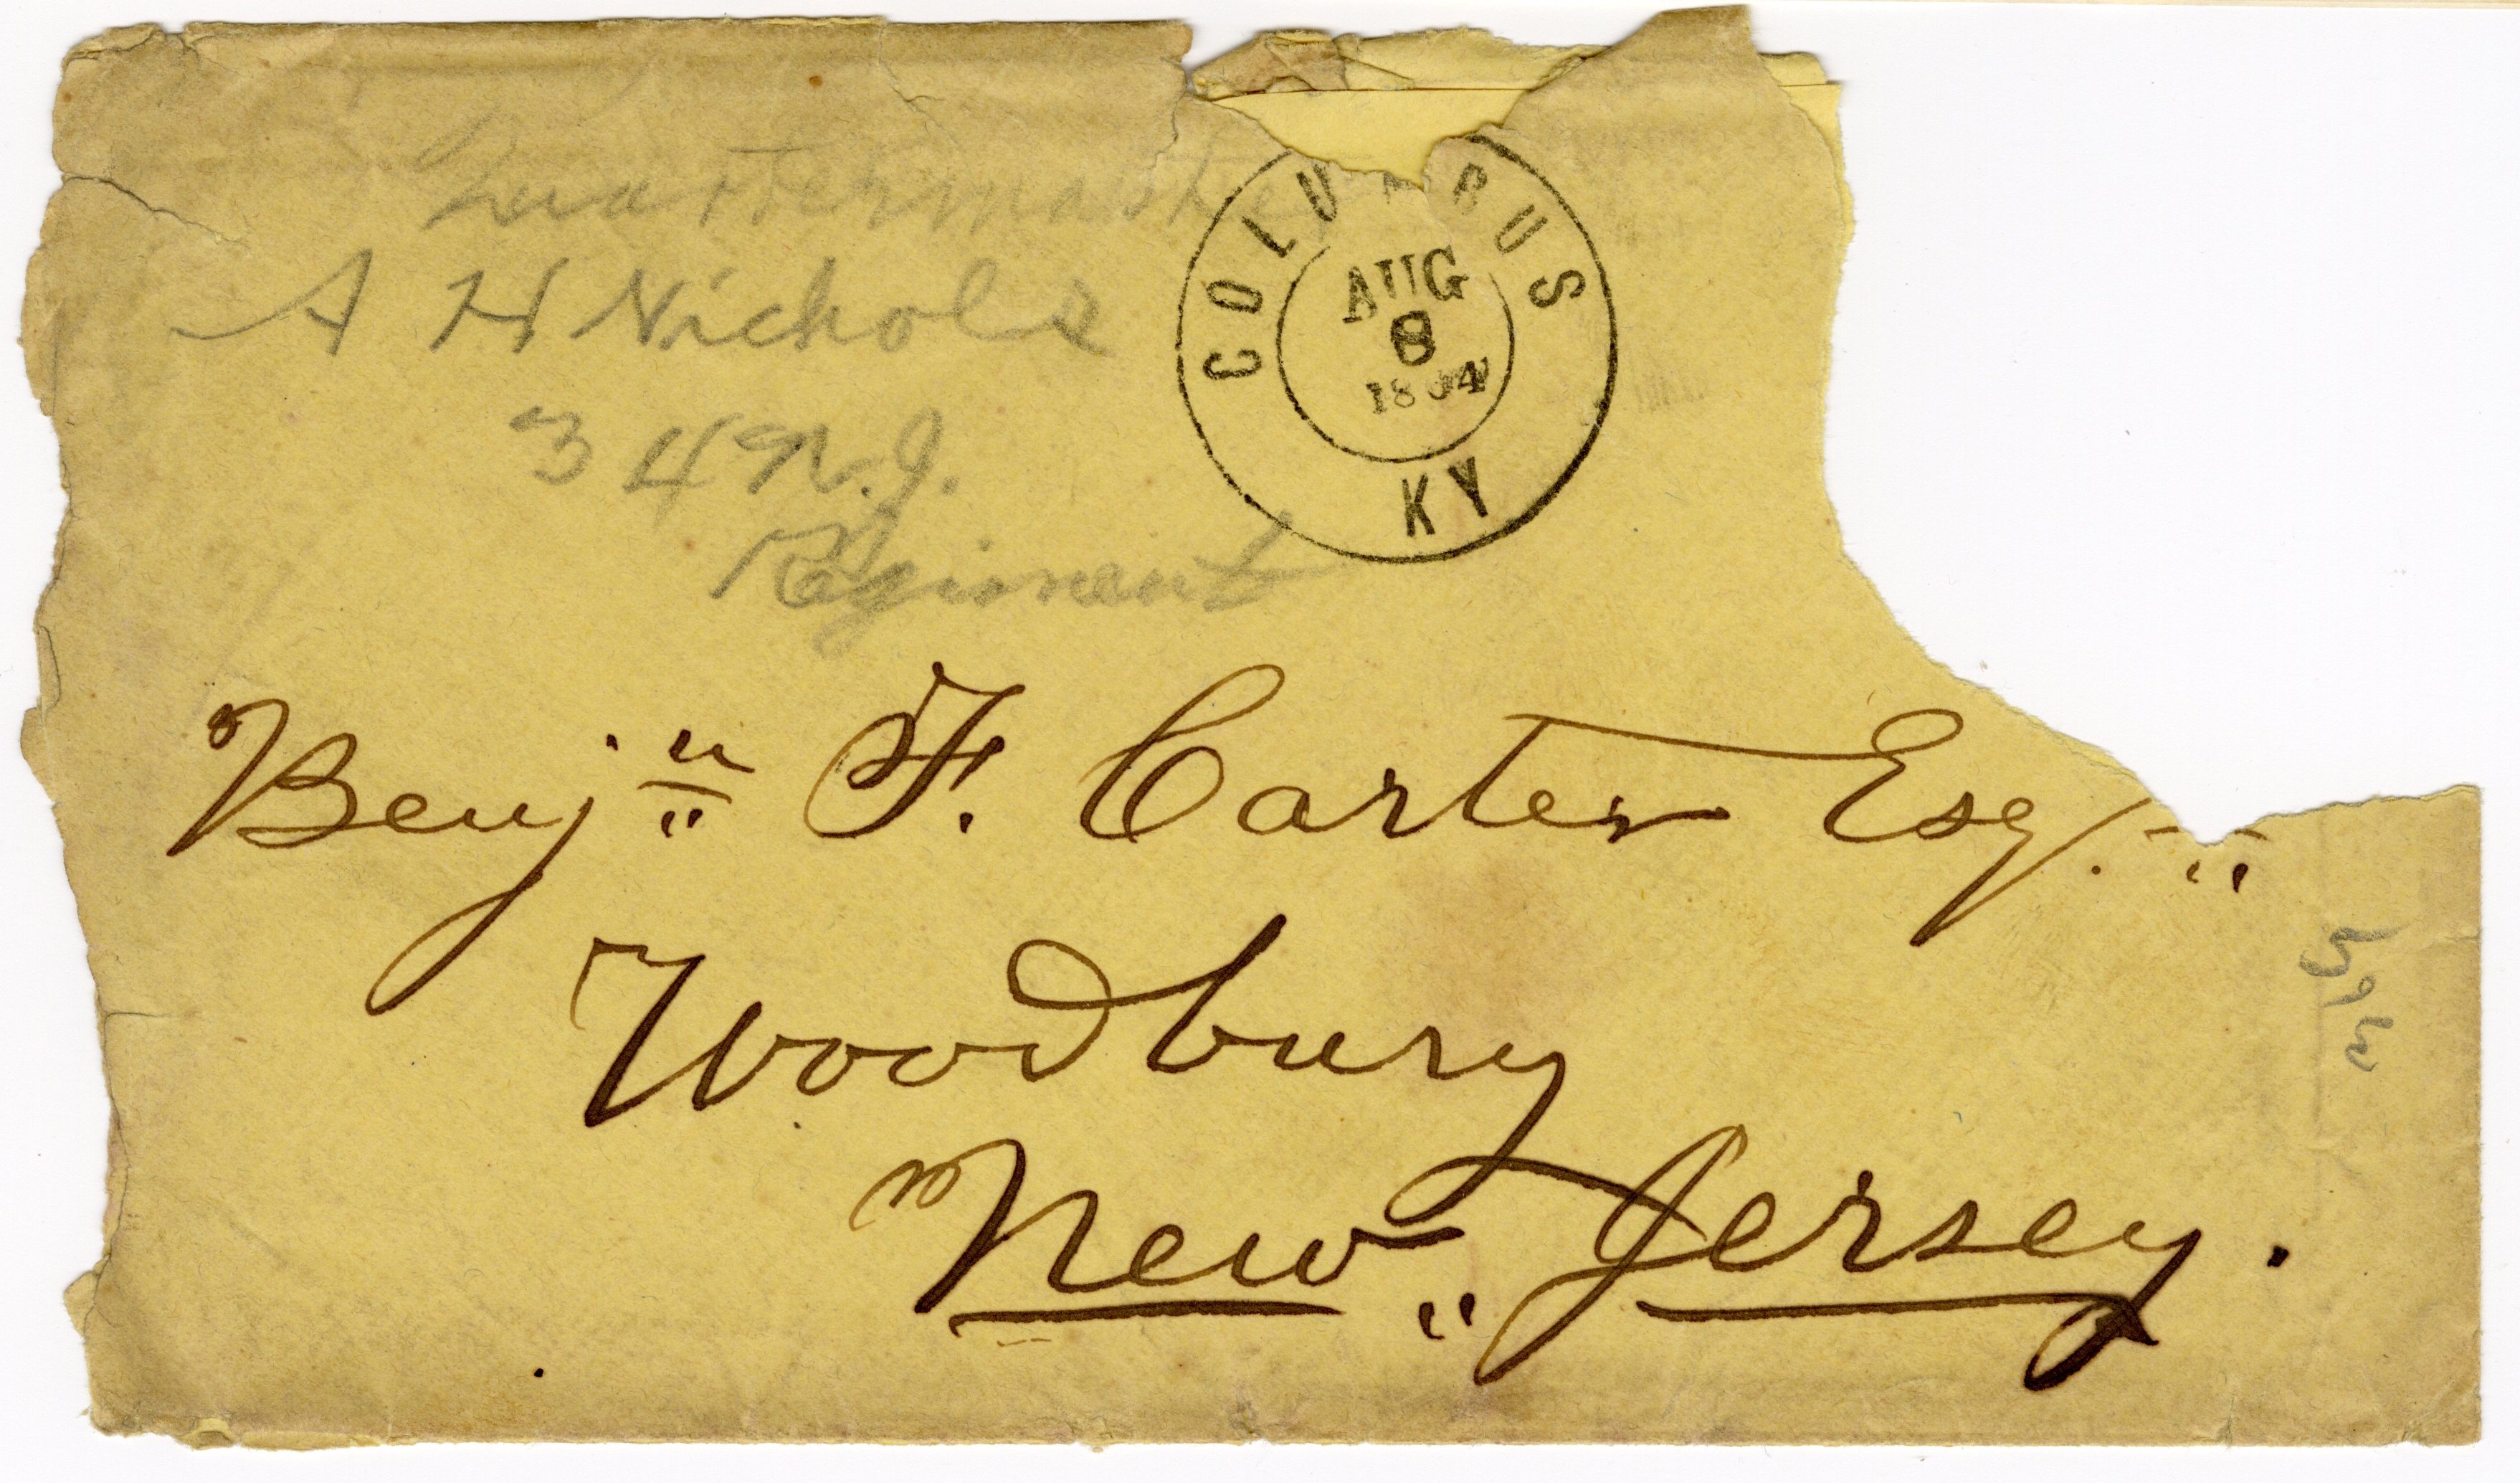 Quartermaster
A H Nichols
34 N.J.
Regiment
COLUMBUS
AUG
8
1864
KY
Benjn F. Carter Esq.
Woodbury
New Jersey.